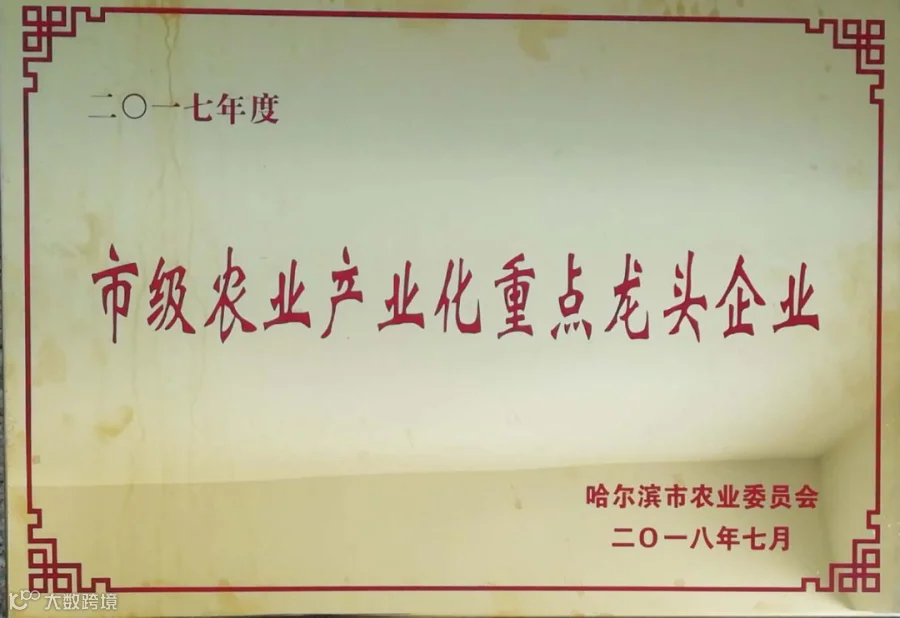 二〇一七年度
市级农业产业化重点龙头企业
哈尔滨市农业委员会
二〇一八年七月
大数跨境